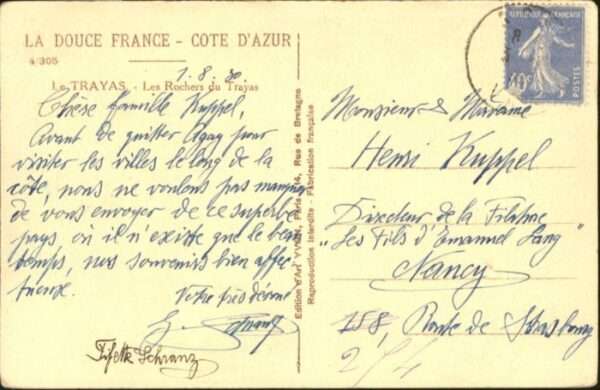 LA DOUCE FRANCE - COTE D'AZUR
4/305
Le TRAYAS - Les Rochers du Trayas
1.8.30
Chère famille Kuppel,
Avant de quitter Agay pour
visiter les villes le long de la
côte, nous ne voulons pas manquer
de vous envoyer de ce superbe
pays où il n'existe que le beau
temps, nos souvenirs bien affec
tueux.
Votre très dévoué
Fifette Schranz
Edition d'Art YVON, Paris, Rue de Bretagne
Reproduction Interdite - Fabrication française
REPUBLIQUE FRANÇAISE
40c
POSTES
Monsieur & Madame
Henri Kuppel
Directeur de la Filature
"Les Fils d'Emanuel Lang"
Nancy
158, Route de Strasbourg